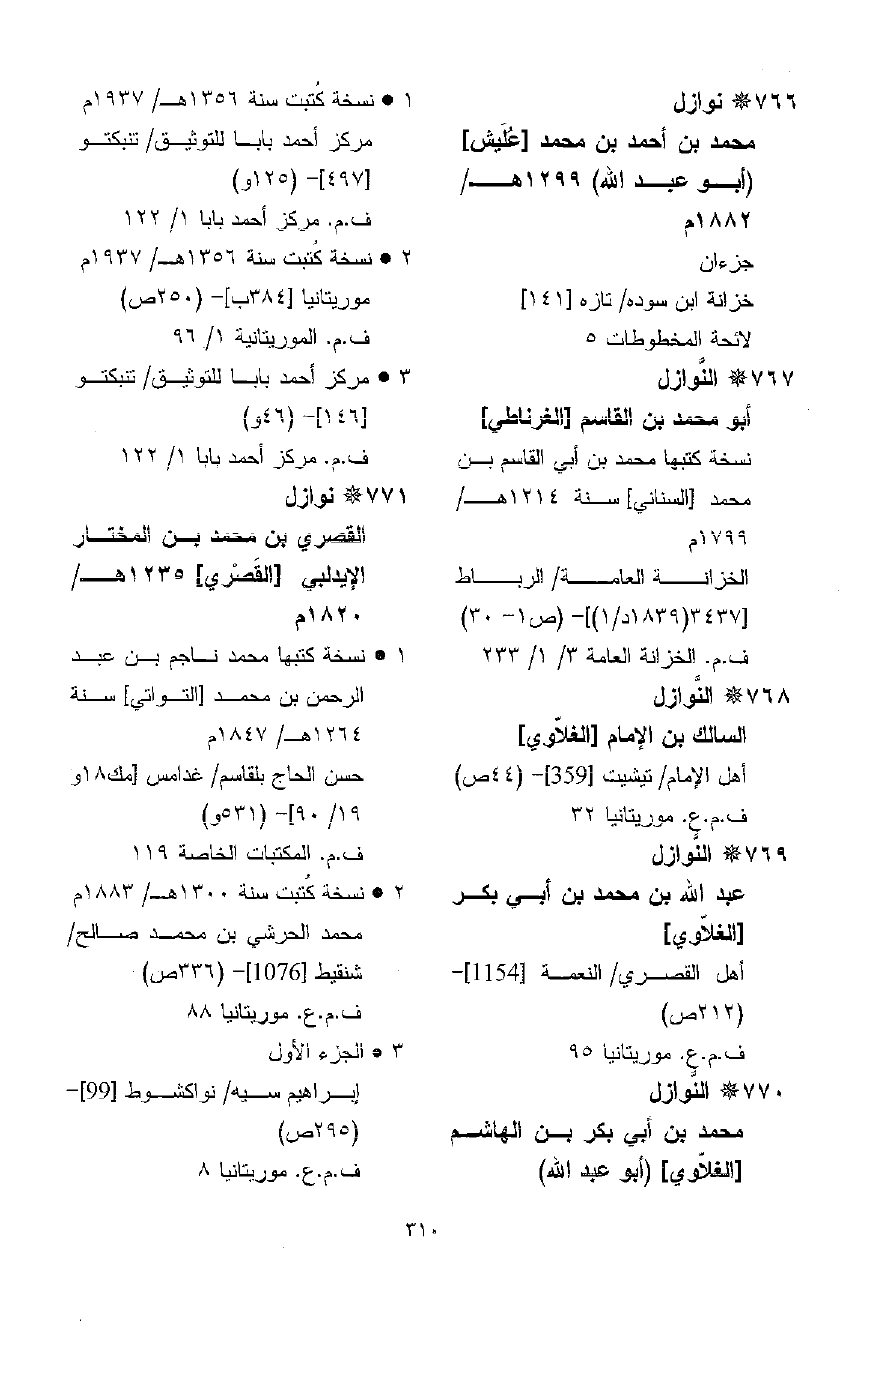 ٧٦٦* نوازل
محمد بن أحمد بن محمد [عُلَيش]
(أبو عبد الله) ١٢٩٩هـ/
١٨٨٢م
جزءان
خزانة ابن سوده/ تازه [١٤١]
لائحة المخطوطات ٥
٧٦٧* النَّوازل
أبو محمد بن القاسم [الغرناطي]
نسخة كتبها محمد بن أبي القاسم بن
محمد [السناني] سنة ١٢١٤هـ/
١٧٩٩م
الخزانة العامة/ الرباط
[٣٤٣٧(١٨٣٩د/١)]- (ص١- ٣٠)
ف.م. الخزانة العامة ٣/ ١/ ٢٣٣
٧٦٨* النَّوازل
السالك بن الإمام [الغلاّوي]
أهل الإمام/ تيشيت [359]- (٤٤ص)
ف.م.ع. موريتانيا ٣٢
٧٦٩* النَّوازل
عبد الله بن محمد بن أبي بكر
[الغلاّوي]
أهل القصري/ النعمة [1154]-
(٢١٢ص)
ف.م.ع. موريتانيا ٩٥
٧٧٠* النَّوازل
محمد بن أبي بكر بن الهاشم
[الغلاّوي] (أبو عبد الله)
١ • نسخة كُتبت سنة ١٣٥٦هـ/ ١٩٣٧م
مركز أحمد بابا للتوثيق/ تنبكتو
[٤٩٧]- (١٢٥و)
ف.م. مركز أحمد بابا ١/ ١٢٢
٢ • نسخة كُتبت سنة ١٣٥٦هـ/ ١٩٣٧م
موريتانيا [٣٨٤ب]- (٢٥٠ص)
ف.م. الموريتانية ١/ ٩٦
٣ • مركز أحمد بابا للتوثيق/ تنبكتو
[١٤٦]- (٤٦و)
ف.م. مركز أحمد بابا ١/ ١٢٢
٧٧١* نوازل
القصري بن محمد بن المختار
الإيدلبي [القَصْري] ١٢٣٥هـ/
١٨٢٠م
١ • نسخة كتبها محمد ناجم بن عبد
الرحمن بن محمد [التواتي] سنة
١٢٦٤هـ/ ١٨٤٧م
حسن الحاج بلقاسم/ غدامس [مك١٨و
١٩/ ٩٠]- (٥٣١و)
ف.م. المكتبات الخاصة ١١٩
٢ • نسخة كُتبت سنة ١٣٠٠هـ/ ١٨٨٣م
محمد الحرشي بن محمد صالح/
شنقيط [1076]- (٣٣٦ص)
ف.م.ع. موريتانيا ٨٨
٣ • الجزء الأول
إبراهيم سيه/ نواكشوط [99]-
(٢٩٥ص)
ف.م.ع. موريتانيا ٨
٣١٠